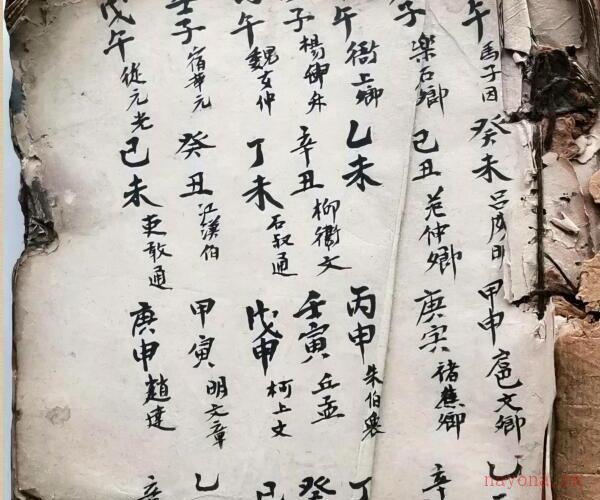 午 馬子因 癸未 吕房明 甲申 扈文卿 乙
子 樂石卿 己丑 范仲卿 庚寅 褚蕉卿 辛
午 衙上卿 乙未 丙申 朱伯衆 丁
子 楊仰 辛丑 柳衛文 壬寅 丘孟 癸
午 魏文仲 丁未 石叔通 戊申 柯上文 己
壬子 宿華元 癸丑 江漢伯 甲寅 明文章 乙
戊午 從元光 己未 吏敢通 庚申 趙達 辛